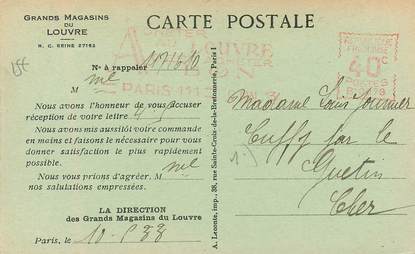 GRANDS MAGASINS
DU
LOUVRE
R. C. SEINE 27162
CARTE POSTALE
N° à rappeler
M
Nous avons l'honneur de vous accuser
réception de votre lettre
Nous avons mis aussitôt votre commande
en mains et faisons le nécessaire pour vous
donner satisfaction le plus rapidement
possible.
Nous vous prions d'agréer, M
nos salutations empressées.
LA DIRECTION
des Grands Magasins du Louvre
Paris, le
A. Leconte, imp., 38, rue Sainte-Croix-de-la-Bretonnerie, Paris
LOUVRE
PARIS
40 c
POSTES
Madame Louis
Cuffy par le
Guetin
Cher